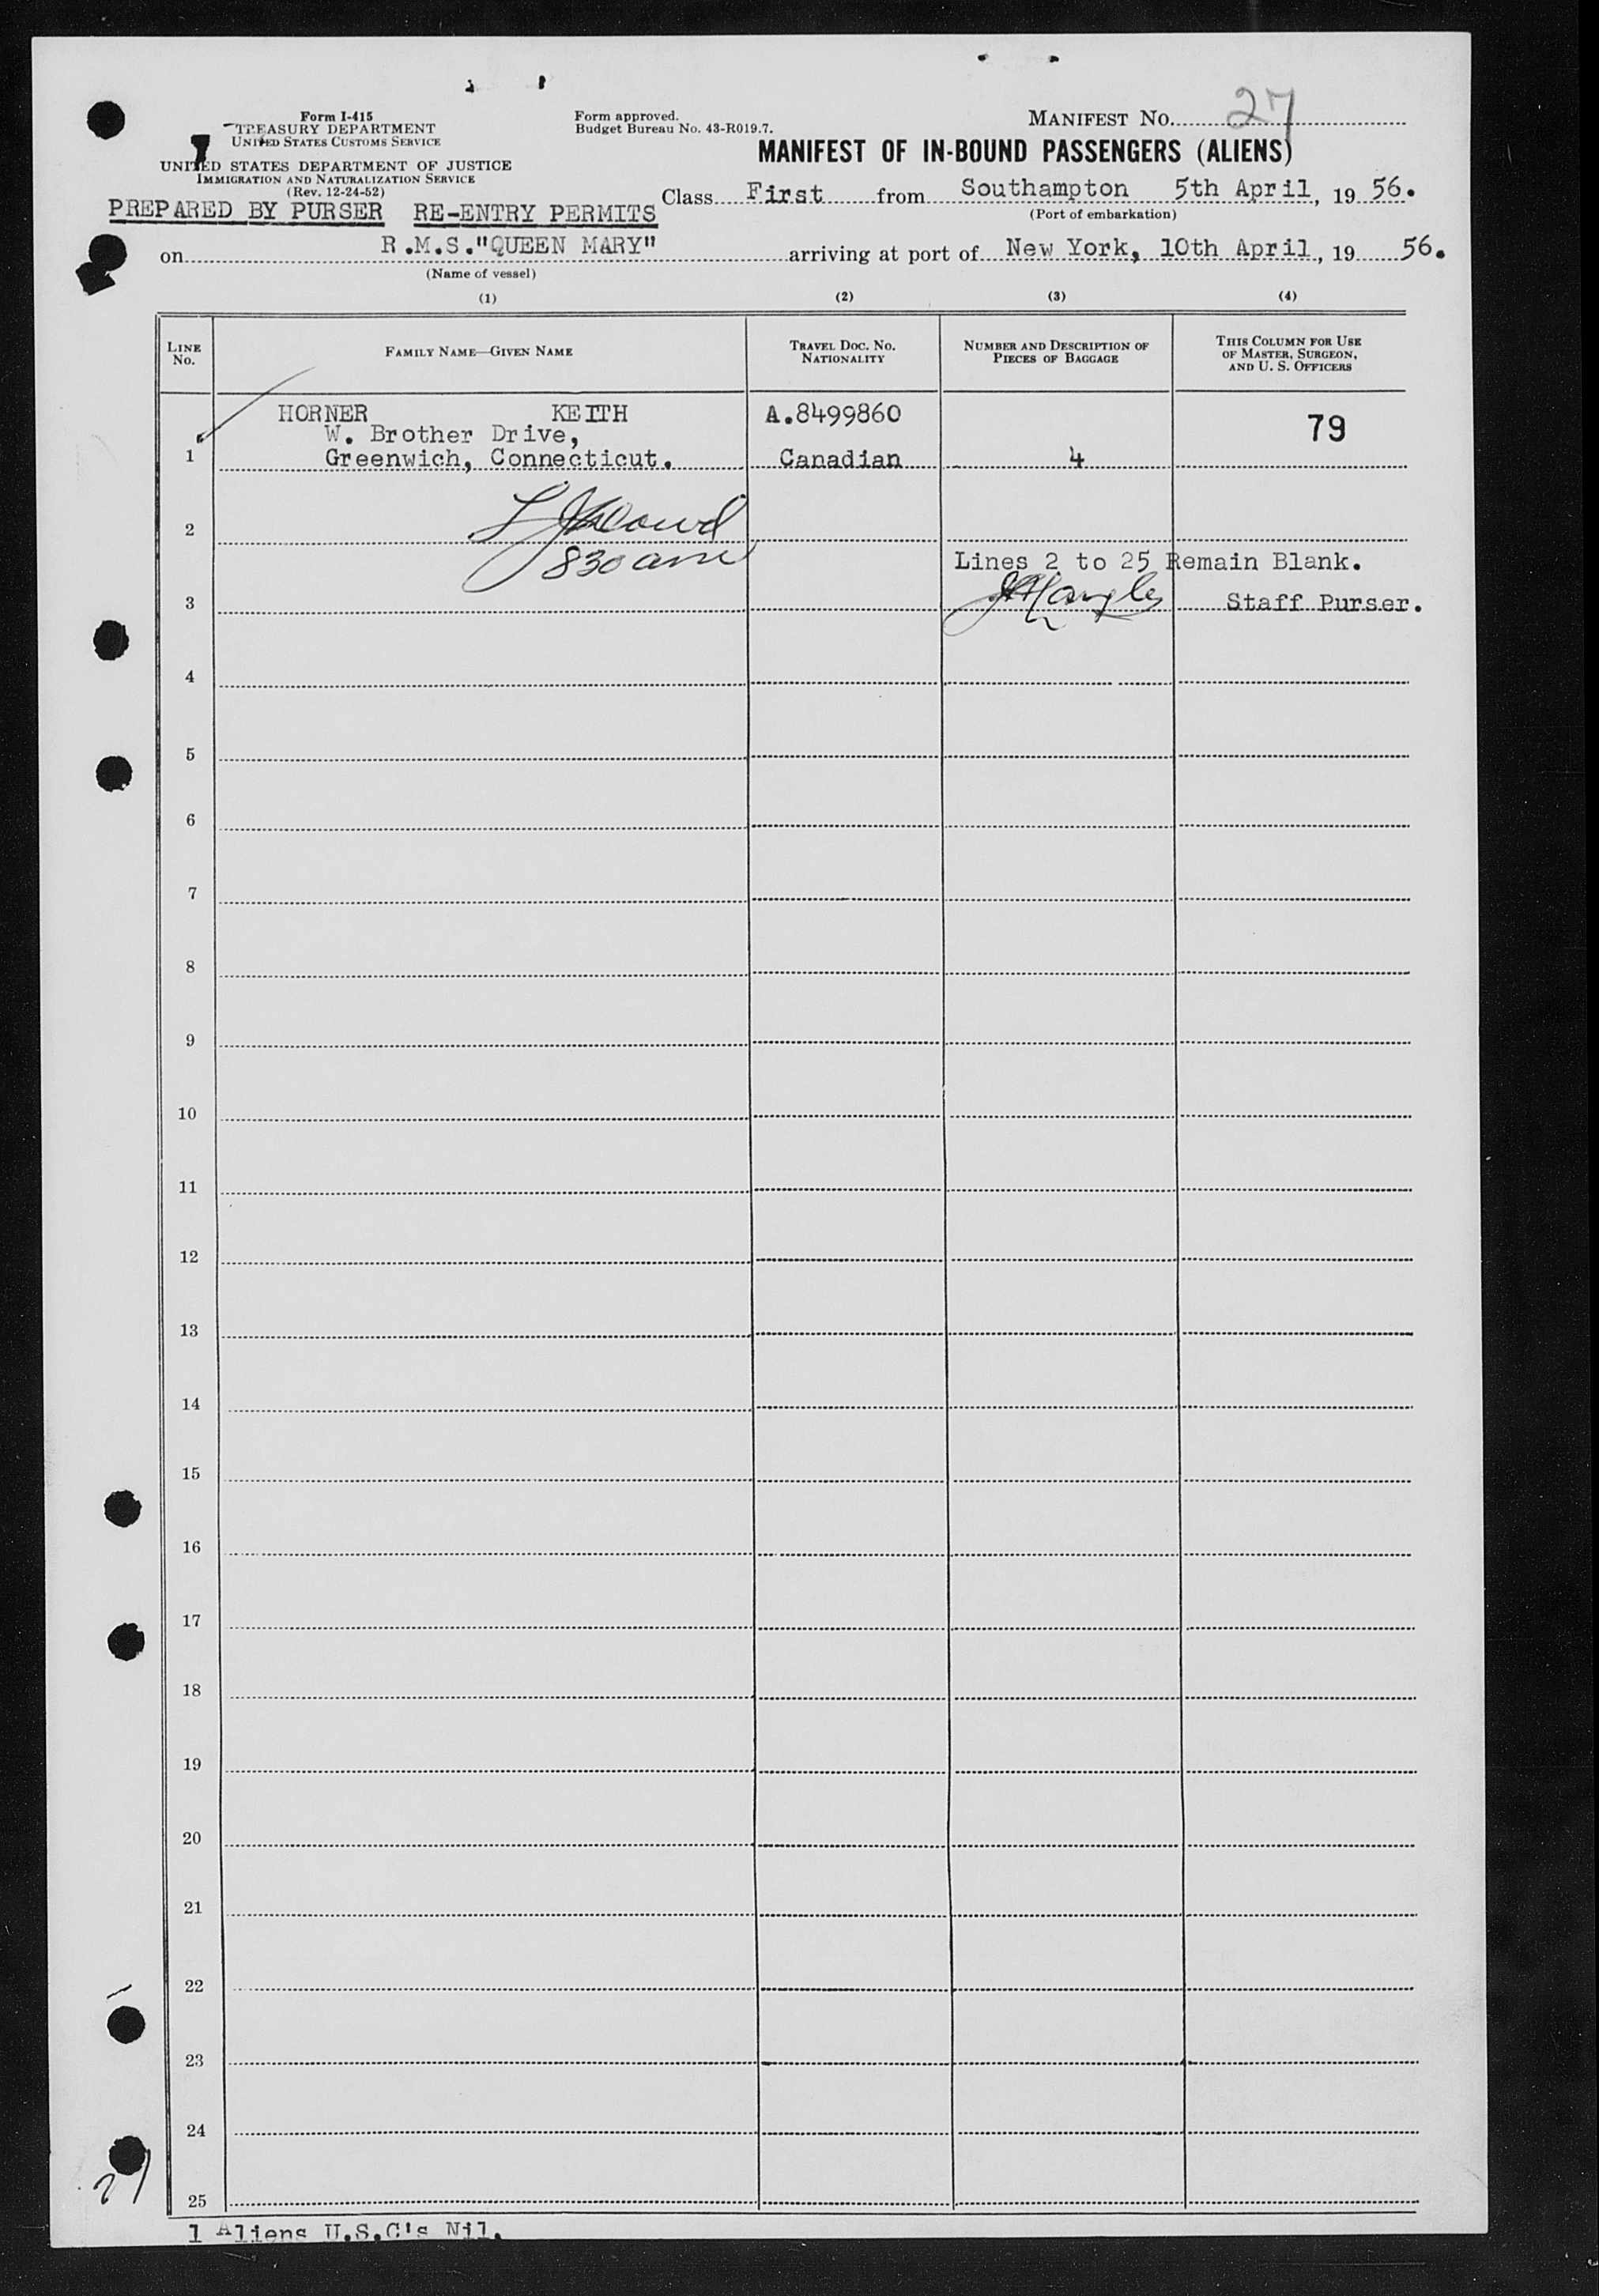 Form I-415
TREASURY DEPARTMENT
UNITED STATES CUSTOMS SERVICE
UNITED STATES DEPARTMENT OF JUSTICE
IMMIGRATION AND NATURALIZATION SERVICE
(Rev. 12-24-52)
PREPARED BY PURSER RE-ENTRY PERMITS
Form approved.
Budget Bureau No. 43-R019.7.
MANIFEST NO. 27
MANIFEST OF IN-BOUND PASSENGERS (ALIENS)
Class First from Southampton 5th April, 19 56.
(Port of embarkation)
on R.M.S."QUEEN MARY" arriving at port of New York, 10th April, 19 56.
(Name of vessel)
(1) (2) (3) (4)
LINE NO.
FAMILY NAME—GIVEN NAME
TRAVEL DOC. NO. NATIONALITY
NUMBER AND DESCRIPTION OF PIECES OF BAGGAGE
THIS COLUMN FOR USE OF MASTER, SURGEON, AND U. S. OFFICERS
HORNER KEITH A.8499860 79
W. Brother Drive,
1 Greenwich, Connecticut. Canadian 4
2
830 am
Lines 2 to 25 Remain Blank.
3 Staff Purser.
4
5
6
7
8
9
10
11
12
13
14
15
16
17
18
19
20
21
22
23
24
27
25
1 Aliens U.S.C's Nil.